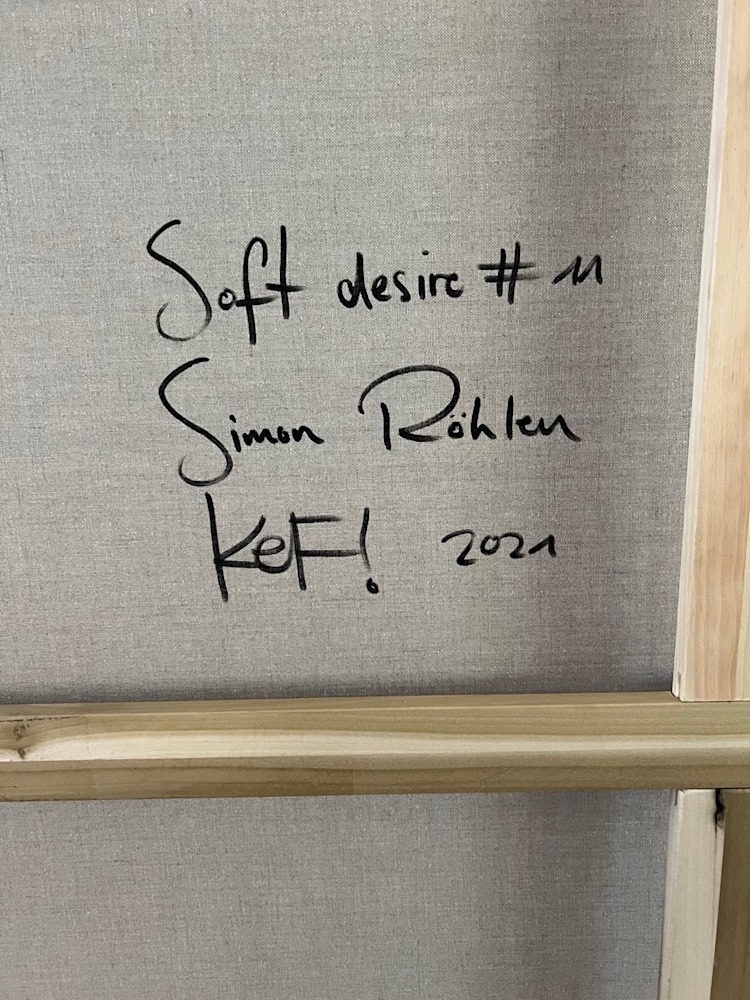 Soft desire # 11
Simon Röhlen
KeF! 2021